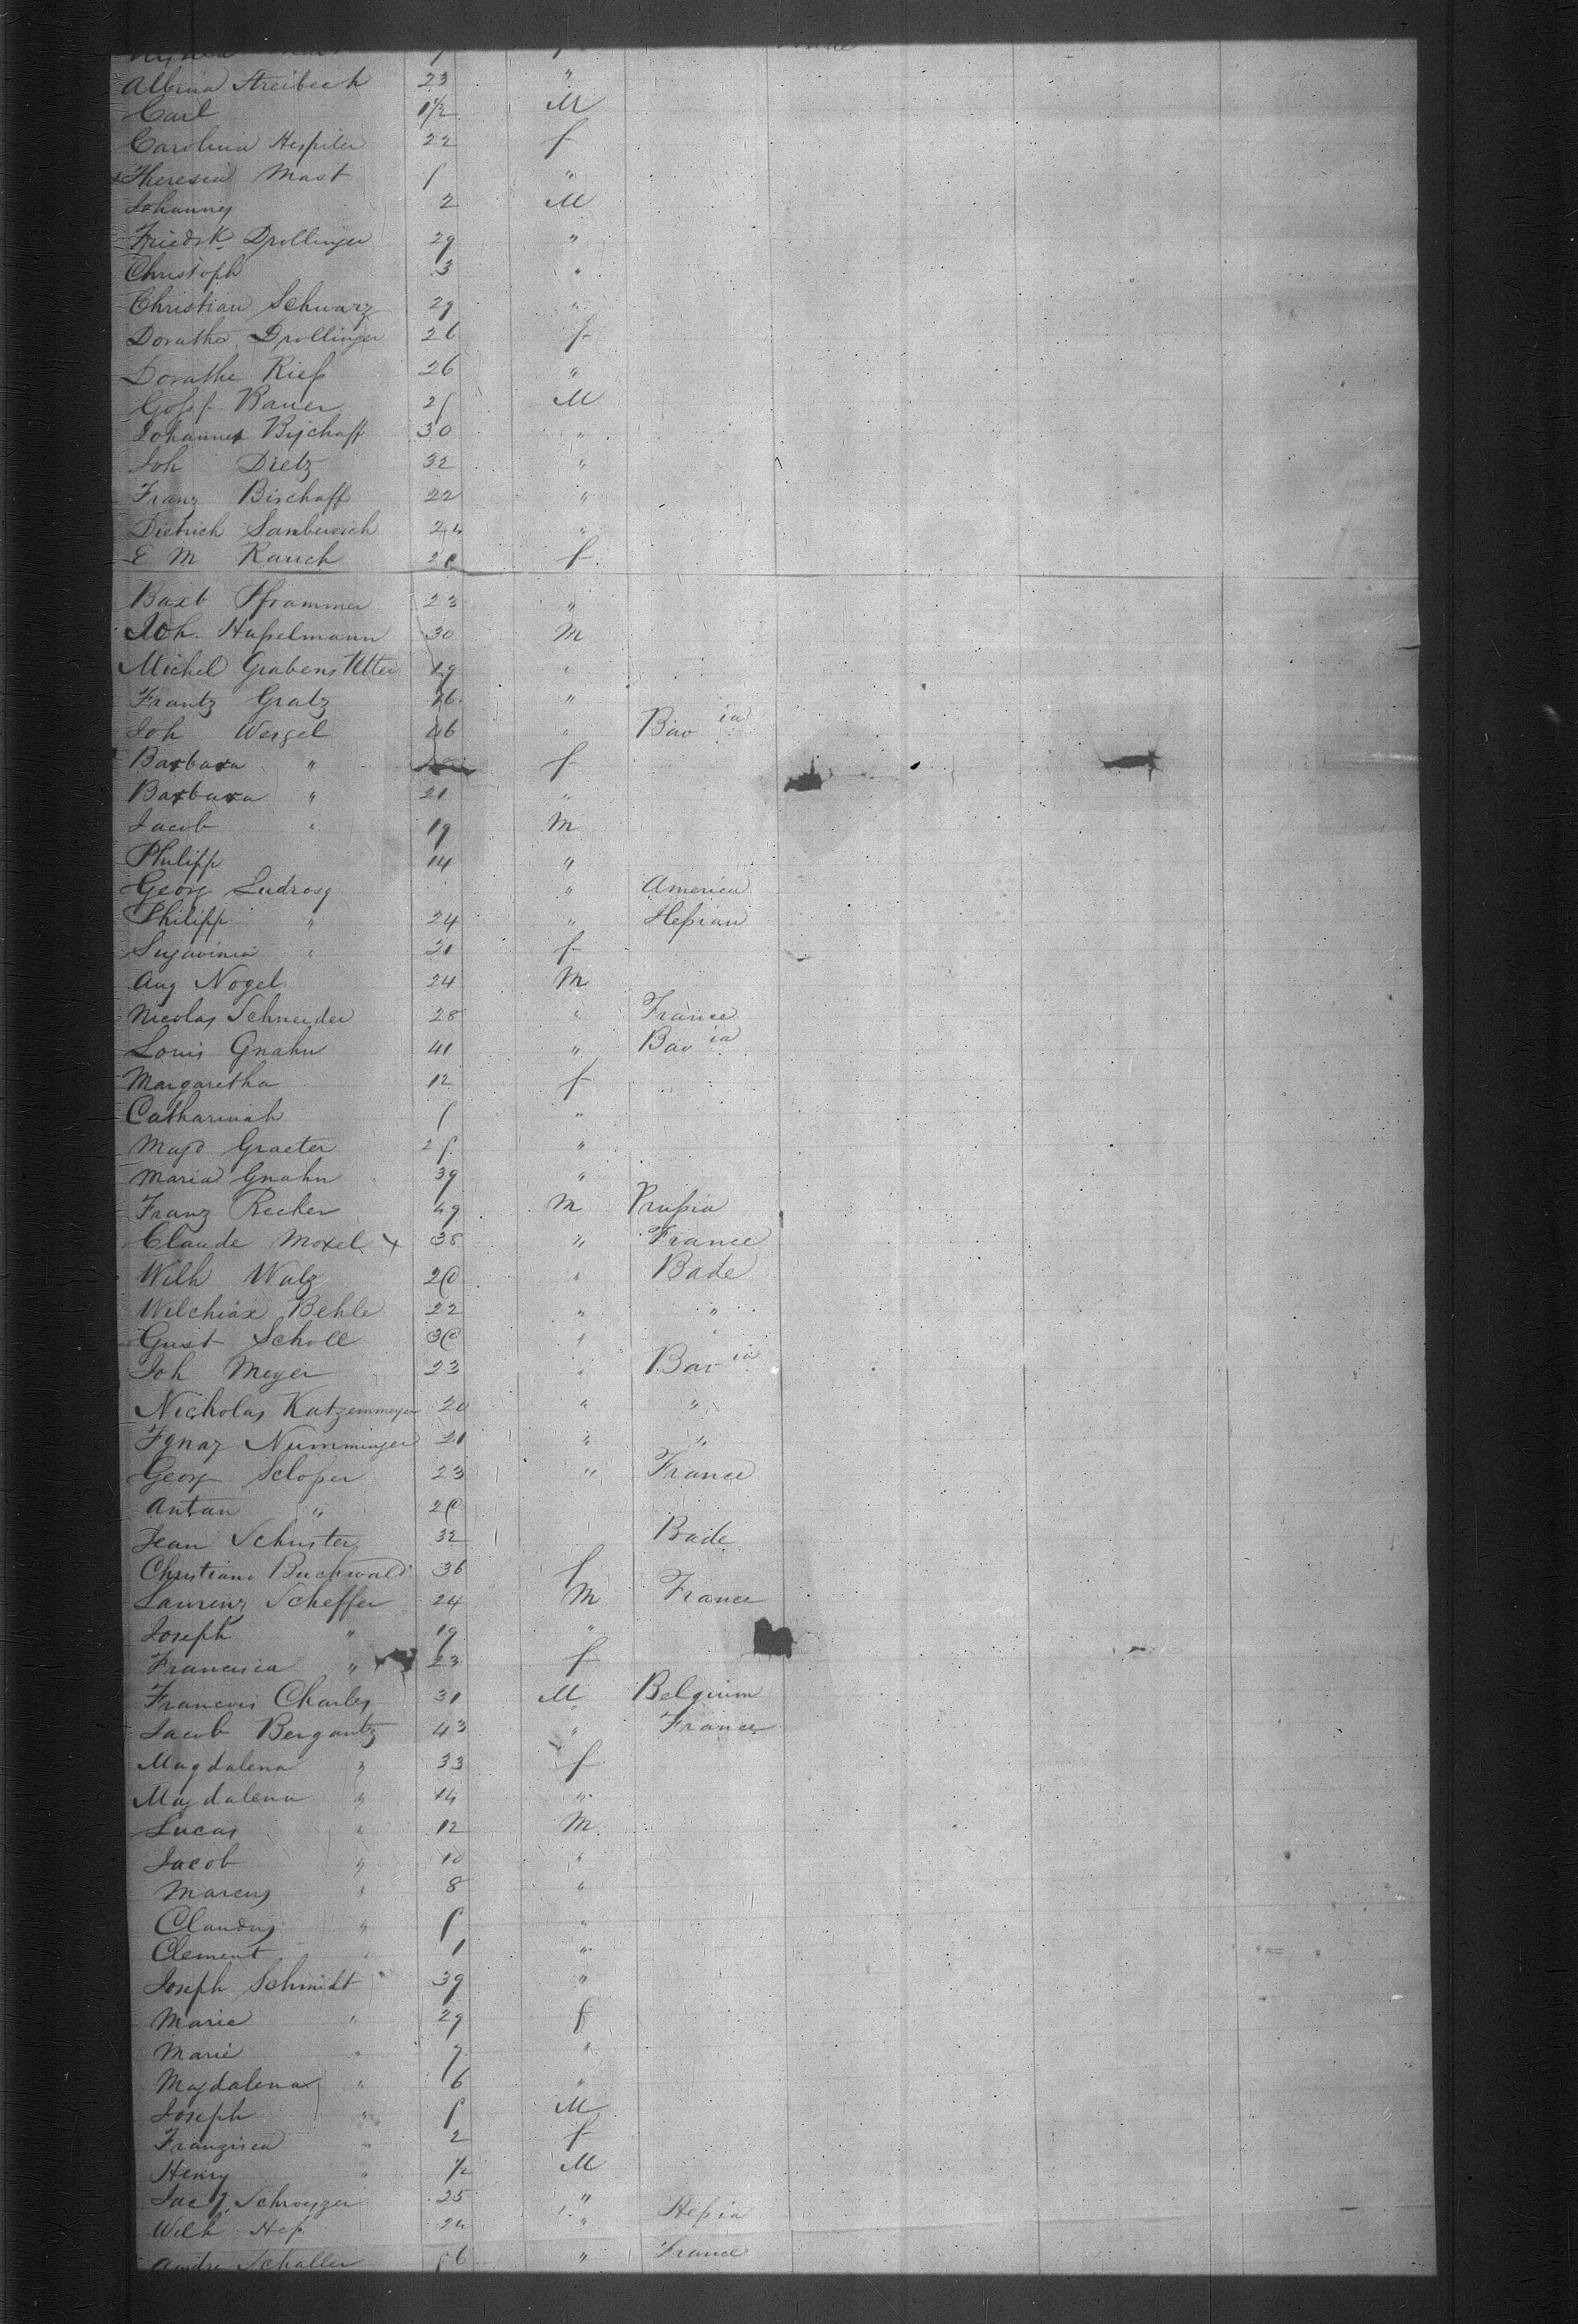 Albina Streibech 23 "
Carl 1 1/2 M
Carolina Hespeler 22 f
Theresia Mast 5 "
Johannes 2 M
Friedrk Drollinger 29 "
Christoph 3 "
Christian Schwarz 29 "
Dorathe Drollinger 26 f
Dorathe Rieß 26 "
Bauer 25 M
Johannes Bischoff 30 "
Joh Dietz 32 "
Franz Bischoff 22 "
Dietrich 24 "
E M Rauch f
Baxb Pframmer 23 "
Joh. Haßelmann 30 M
Michel Grabenstetter 19 "
Frantz Gratz "
Joh Wergel 46 " Bavia
Barbara " f
Barbara " 21 "
Jacob " 19 M
Philipp 14 "
Georg Ludrosg " America
Philipp " 24 " Heßian
" 21 f
Aug Nogel 24 M
Nicolas Schneider 28 " France
Louis Gnahn 41 " Bavia
Margaretha 12 f
Catharinah 5 "
Magd Graeter 25 "
Maria Gnahn 39 "
Franz Recher 49 M Prußia
Claude Moxel x 38 " France
Wilh Walz " Bade
Welchiax Behle 22 " "
Gust Scholl "
Joh Meyer 23 " Bavia
Nicholas Katzenmeyer 20 " "
Ignaz Numminger 21 " "
Georg Scloper 23 " France
Antan "
Jean Schuster 32 Bade
Christiane Buchwald 36 f
Laurenz Scheffer 24 M France
Joseph " 19 "
Francisca " 23 f
Francois Charles 31 M Belgium
Jacob Bergantz 43 " France
Magdalena " 33 f
Magdalena " 14 "
Lucas " 12 M
Jacob " 10 "
Marcus " 8 "
Claudus " 5 "
Clement " 1 "
Joseph Schmidt 39 "
Marie " 29 f
Marie " 7 "
Magdalena " 6 "
Joseph " 5 M
Franzisca " 2 f
Henry " 1/2 M
25 "
Wilh Heß 24 " Heßia
Schaller 56 " France